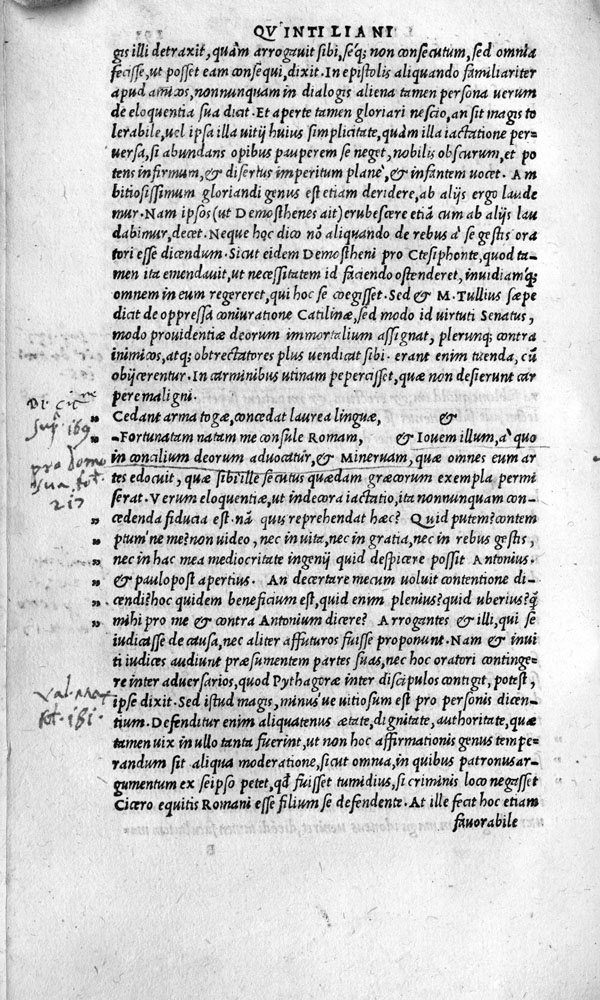 QVINTILIANI
gis illi detraxit, quàm arrogauit sibi, seq́; non consecutum, sed omnia
fecisse, ut posset eam consequi, dixit. In epistolis aliquando familiariter
apud amicos, nonnunquam in dialogis aliena tamen persona uerum
de eloquentia sua dicit. Et aperte tamen gloriari nescio, an sit magis to
lerabile, uel ipsa illa uitij huius simplicitate, quàm illa iactatione per=
uersa, si abundans opibus pauperem se neget, nobilis obscurum, et po
tens infirmum, & disertus imperitum planè, & infantem uocet. Am
bitiosissimum gloriandi genus est etiam deridere, ab alijs ergo laude
mur. Nam ipsos (ut Demosthenes ait) erubescere etiã cum ab alijs lau
dabimur, decet. Neque hoc dico nõ aliquando de rebus à se gestis ora
tori esse dicendum. Sicut eidem Demostheni pro Ctesiphonte, quod ta=
men ita emendauit, ut necessitatem id faciendo ostenderet, inuidiamq́;
omnem in eum regereret, qui hoc se coegisset. Sed & M. Tullius sæpe
dicit de oppressa coniuratione Catilinæ, sed modo id uirtuti Senatus,
modo prouidentiæ deorum immortalium assignat, plerunq; contra
inimicos, atq; obtrectatores plus uendicat sibi. erant enim tuenda, cũ
obijcerentur. In carminibus utinam pepercisset, quæ non desierunt car
pere maligni.
„ Cedant arma togæ, concedat laurea linguæ, &
„ Fortunatam natam me consule Romam, & Iouem illum, à quo
in concilium deorum aduocatur, & Mineruam, quæ omnes eum ar
tes edocuit, quæ sibi ille secutus quædam græcorum exempla permi
serat. Verum eloquentiæ, ut indecora iactatio, ita nonnunquam con=
„ cedenda fiducia est. nã quis reprehendat hæc? Quid putem? contem
„ ptum'ne me? non uideo, nec in uita, nec in gratia, nec in rebus gestis,
„ nec in hac mea mediocritate ingenij quid despicere possit Antonius.
„ & paulo post apertius. An decertare mecum uoluit contentione di=
„ cendi? hoc quidem beneficium est, quid enim plenius? quid uberius? q̃
„ mihi pro me & contra Antonium dicere? Arrogantes & illi, qui se
iudicasse de causa, nec aliter affuturos fuisse proponunt. Nam & inui
ti iudices audiunt præsumentem partes suas, nec hoc oratori continge=
re inter aduersarios, quod Pythagoræ inter discipulos contigit, potest,
ipse dixit. Sed istud magis, minus'ue uitiosum est pro personis dicen=
tium. Defenditur enim aliquatenus ætate, dignitate, authoritate, quæ
tamen uix in ullo tanta fuerint, ut non hoc affirmationis genus tempe=
randum sit aliqua moderatione, sicut omnia, in quibus patronus ar=
gumentum ex seipso petet, qđ fuisset tumidius, si criminis loco negasset
Cicero equitis Romani esse filium se defendente. At ille fecit hoc etiam
fauorabile
169
pro domo
sua fol.
217
Val. Max
fol. 181.